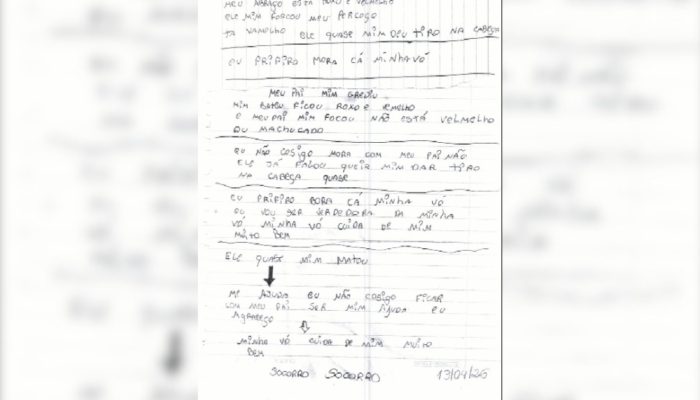 MEU ABRAÇO ESTA ROXO E VEMELHO
ELE MIM FORCOU MEU PERCOÇO
TA VAMELHO ELE QUASE MIM DEU TIRO NA CABEÇA
EU PRIFIRO MORA CÁ MINHA VÓ
MEU PAI MIM GREDIU
MIM BATEU FICOU ROXO E
E MEU PAI MIM FOCOU NÃO ESTÁ VELMELHO
OU MACHUCADO
EU NÃO COSIGO MORA COM MEU PAI NÃO
ELE JÁ FALOU QUEIA MIM DAR TIRO
NA CABEÇA QUASE
EU PRIFIRO CÁ MINHA VÓ
EU VOU SER DA MINHA
VÓ, MINHA VÓ CUIDA DE MIM
MUITO BEM
ELE QUASE MIM MATOU
ME AJUDA EU NÃO COSIGO FICAR
COM MEU PAI SER MIM AJUDA EU
AGRADEÇO
MINHA VÓ CUIDA DE MIM MUITO
BEM
SOCORRO SOCORRO 13/04/26